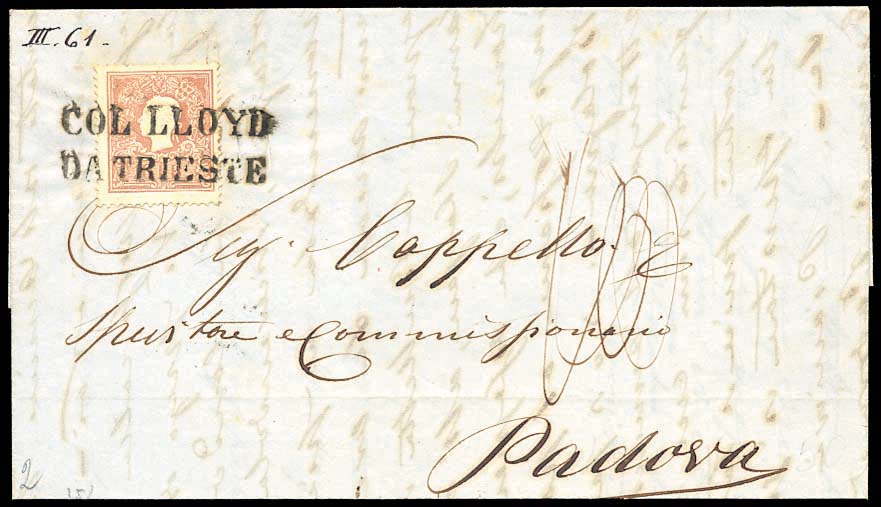 III. 61.
COL LLOYD
DA TRIESTE
Sig. Cappello
e Commissionario
Padova
2